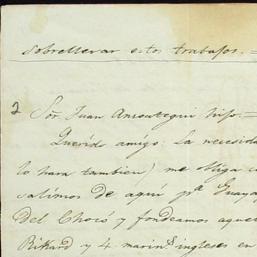 sobrellevar estos trabajos.=
2 Sōr Juan Amoategui hijo.=
Querido amigo: La necesida
lo hara tambien) me obliga
salimos de aqui pª Guaya
Del Chocó y fondeamos aque
Rikard y 4 marins ingleses en